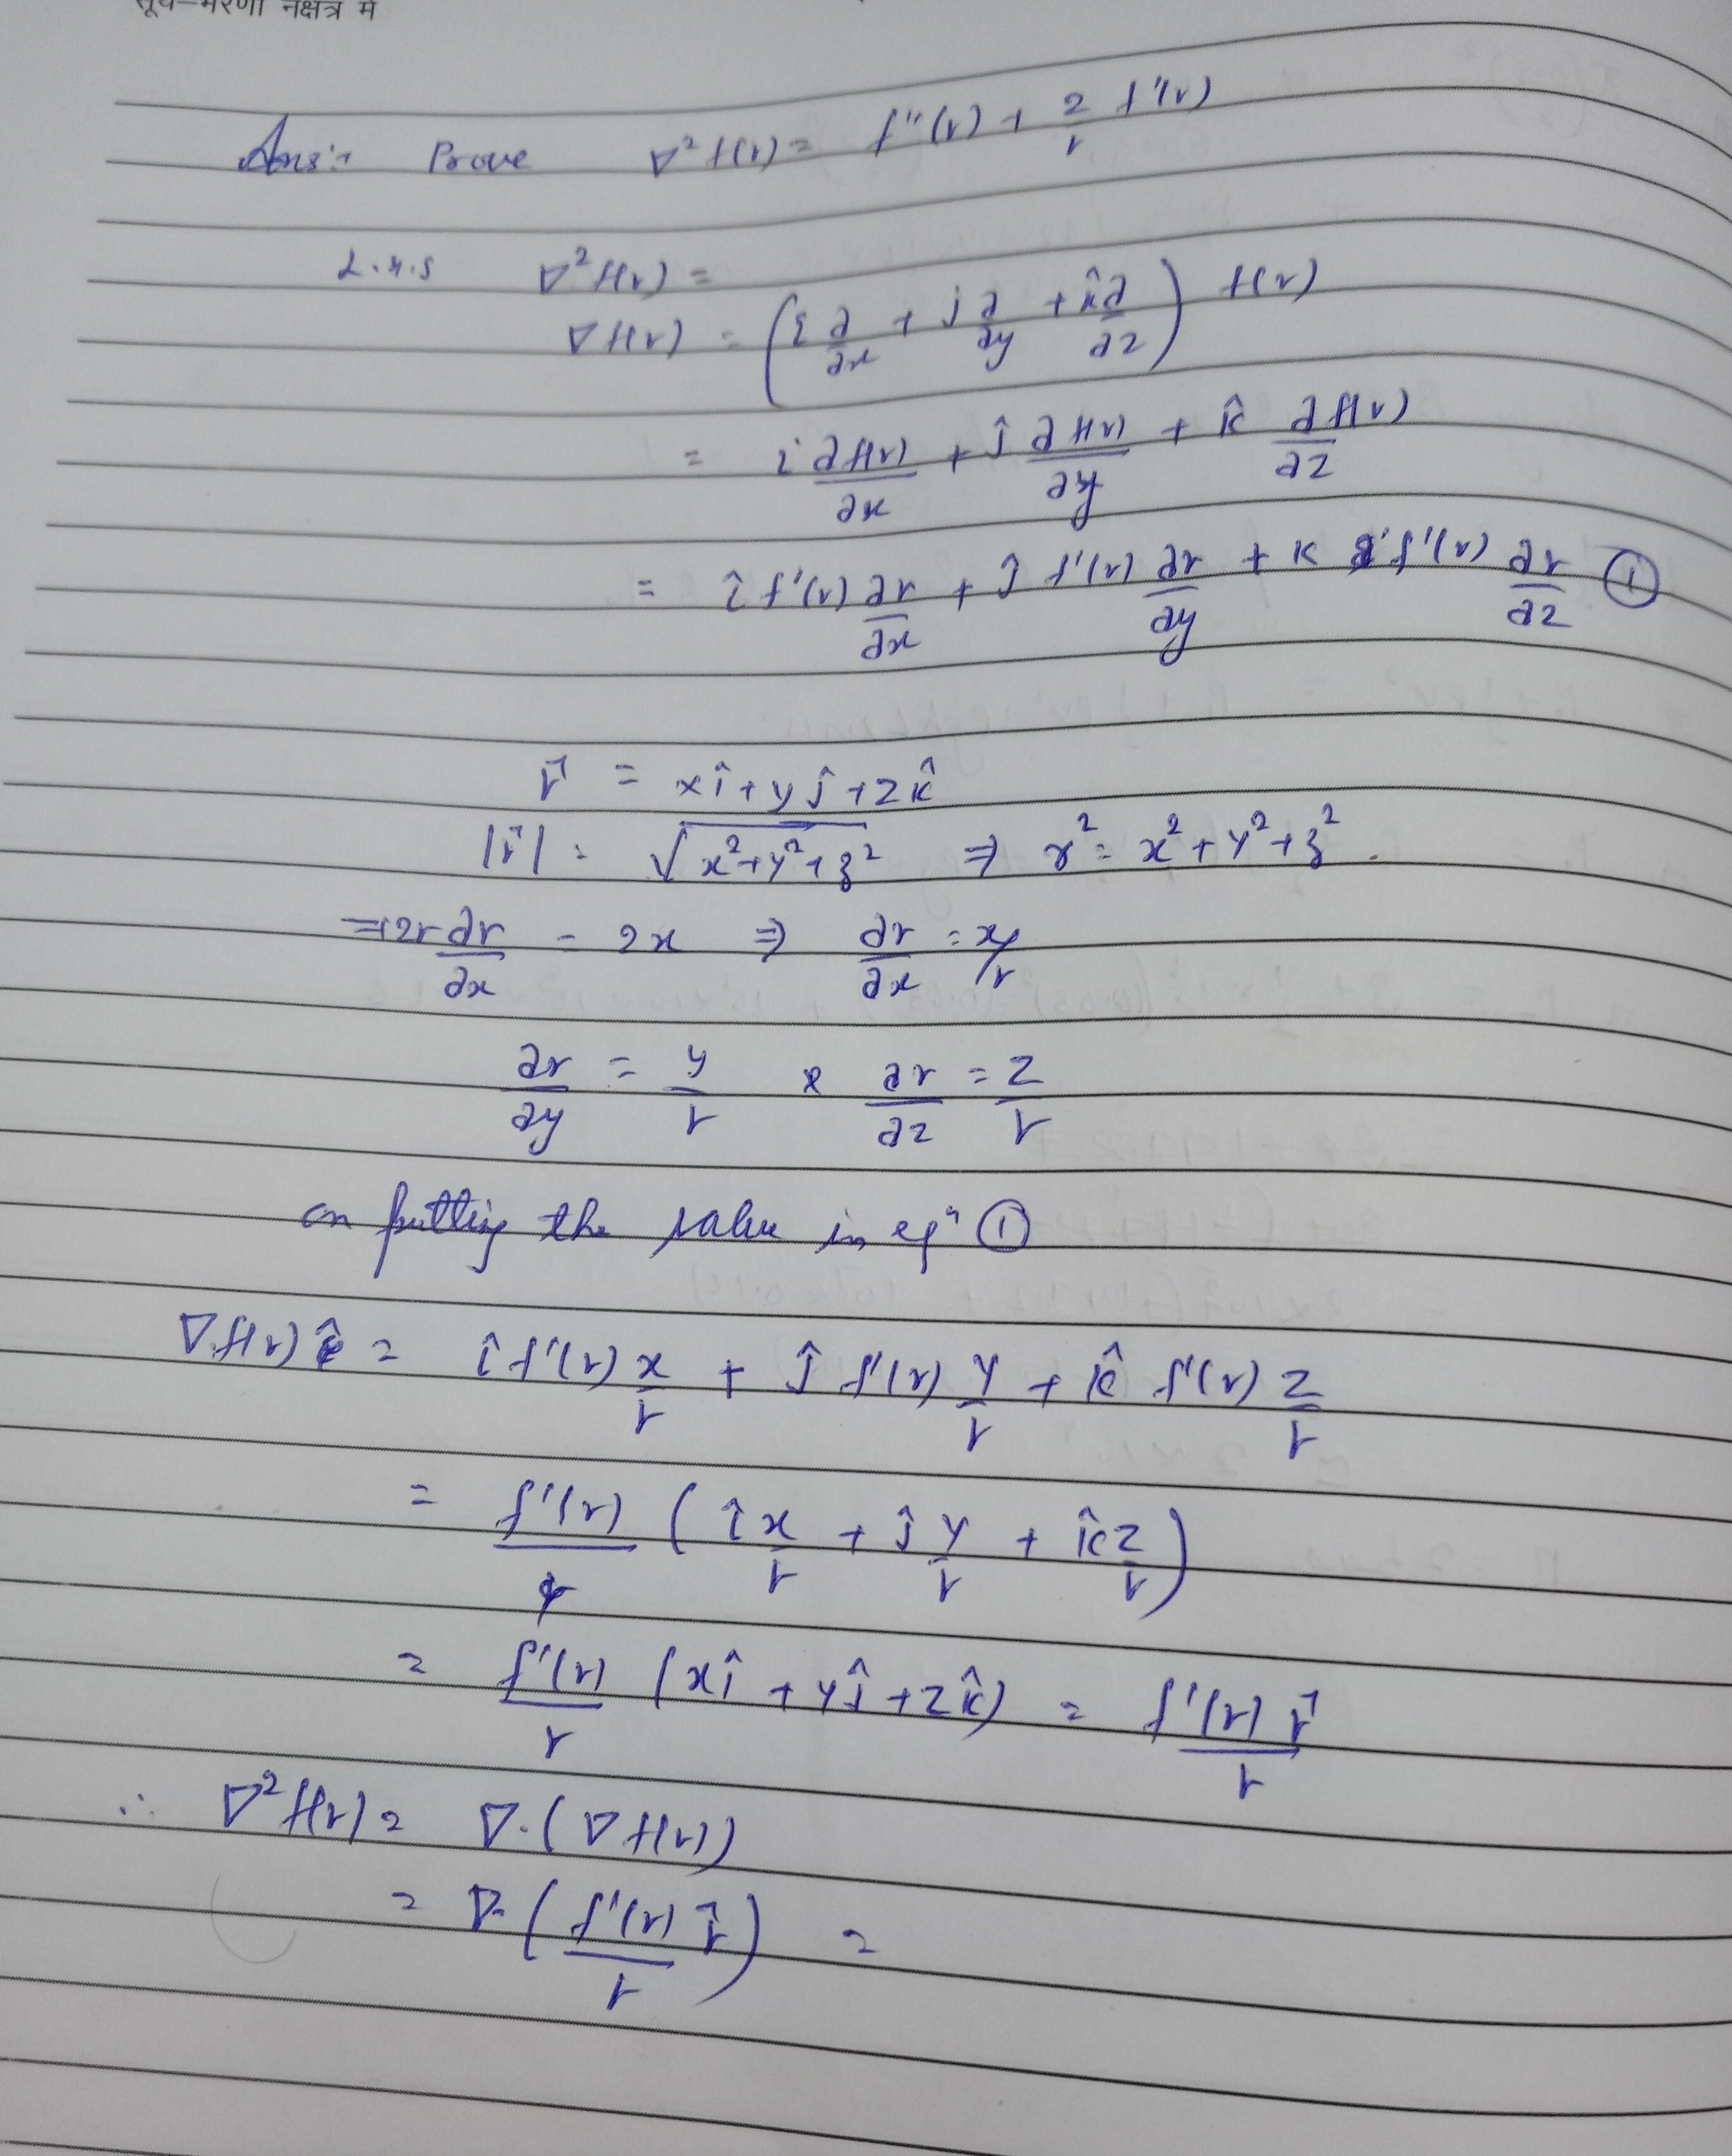 सूर्य-भरणी नक्षत्र में
Ans:- Prove ∇²f(r) = f''(r) + 2/r f'(r)
L.H.S ∇²f(r) =
∇f(r) = (î ∂/∂x + ĵ ∂/∂y + k̂ ∂/∂z) f(r)
= i ∂f(r)/∂x + ĵ ∂f(r)/∂y + k̂ ∂f(r)/∂z
= î f'(r) ∂r/∂x + ĵ f'(r) ∂r/∂y + k f'(r) ∂r/∂z ①
r⃗ = xî + yĵ + zk̂
|r⃗| = √(x²+y²+z²) ⇒ r² = x²+y²+z².
⇒ 2r ∂r/∂x = 2x ⇒ ∂r/∂x = x/r
∂r/∂y = y/r & ∂r/∂z = z/r
on putting the value in eqⁿ ①
∇f(r) = î f'(r) x/r + ĵ f'(r) y/r + k̂ f'(r) z/r
= f'(r) (î x/r + ĵ y/r + k̂ z/r)
= f'(r)/r (xî + yĵ + zk̂) = f'(r) r⃗/r
∴ ∇²f(r) = ∇.(∇f(r))
= ∇.(f'(r)/r r⃗) =